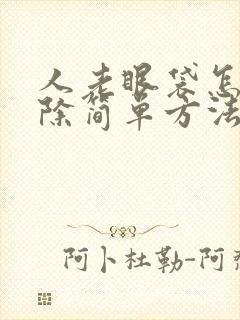 人老眼袋怎
除简单方法
阿卜杜勒-阿